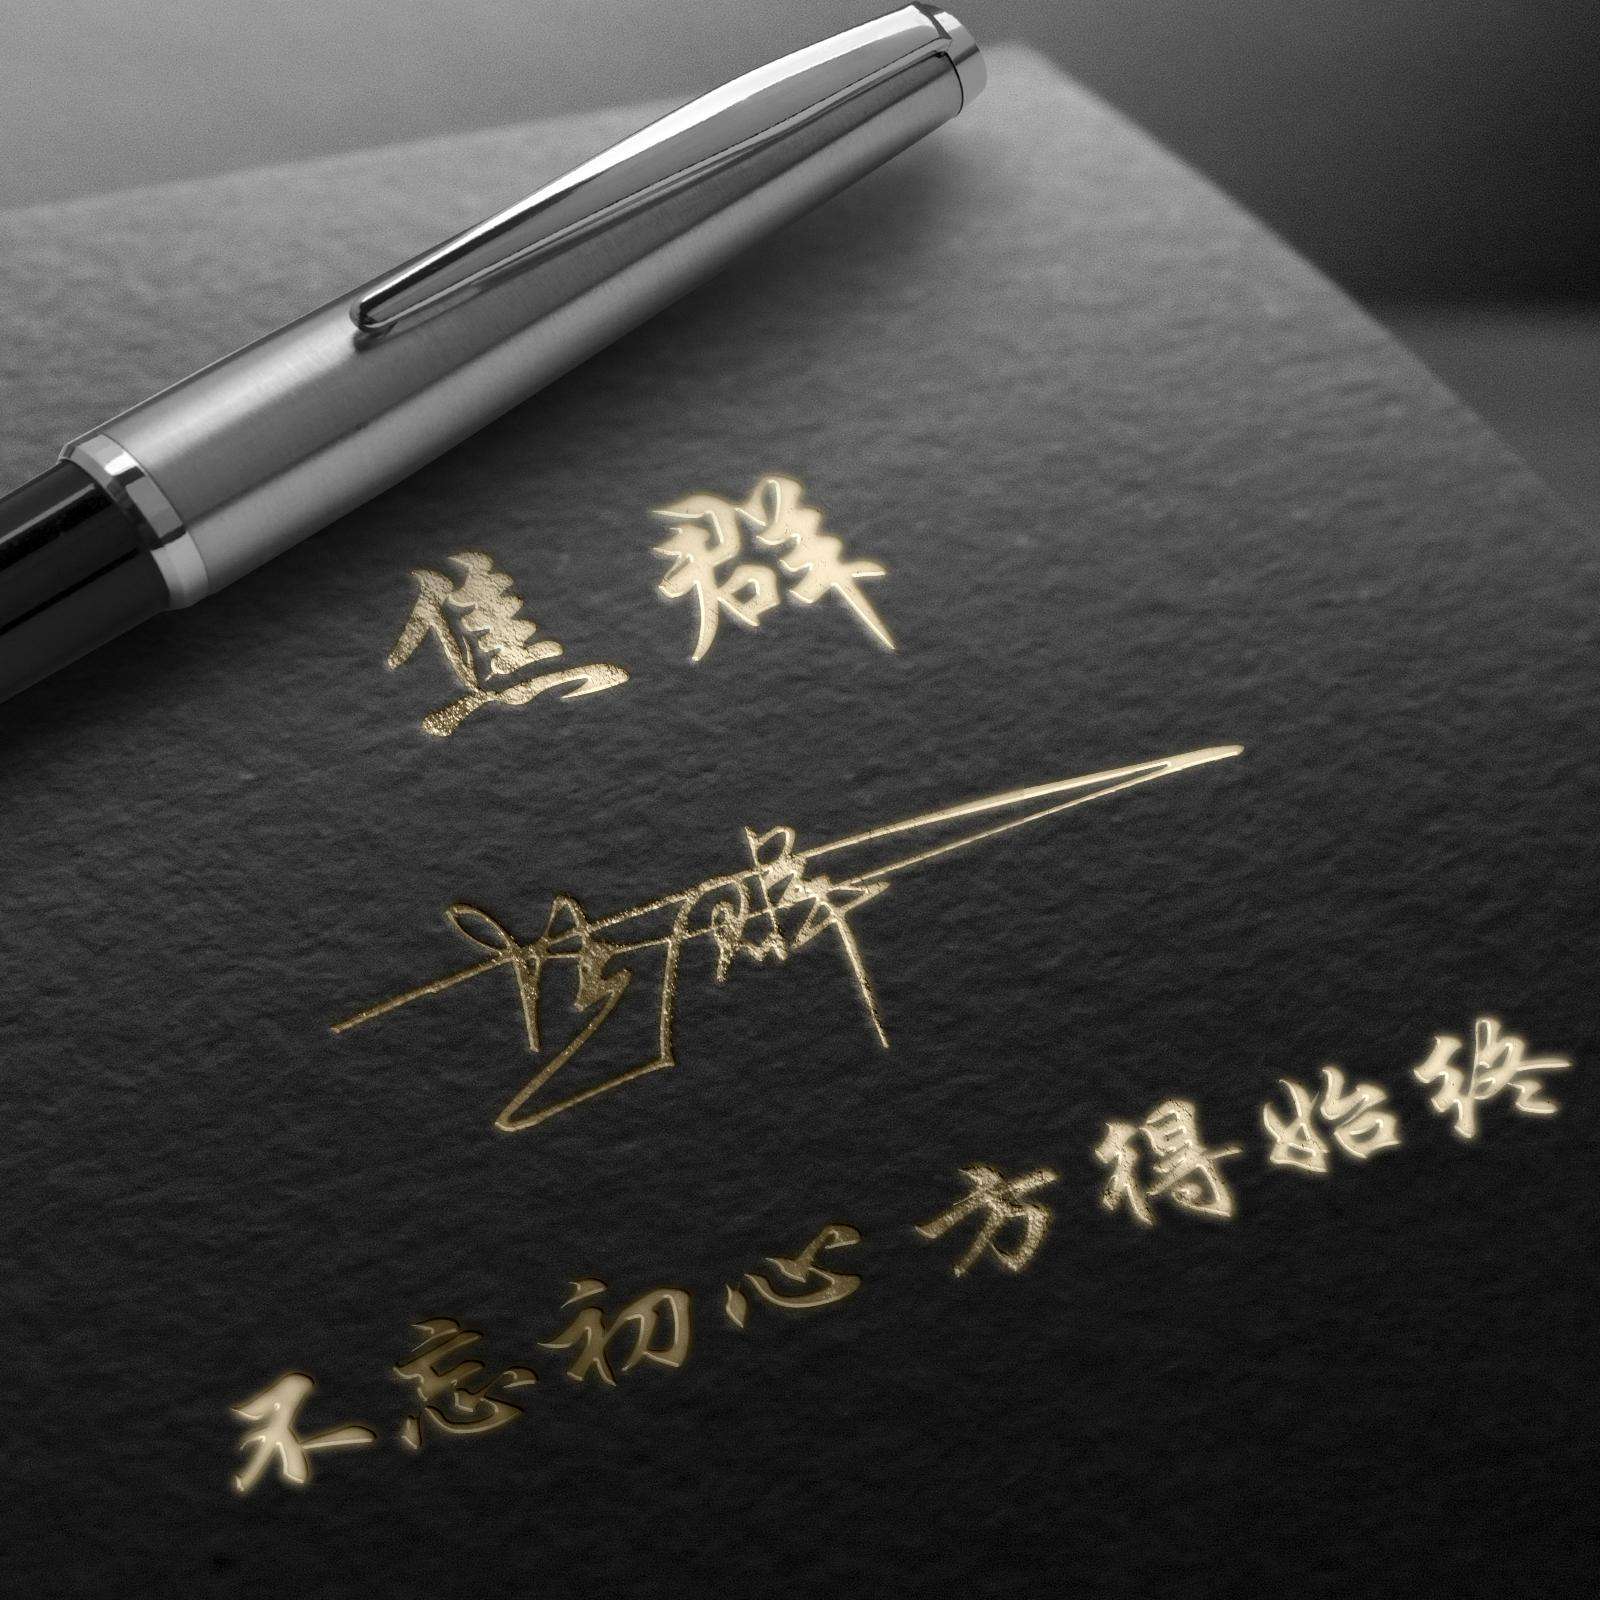 焦群
不忘初心 方得始终